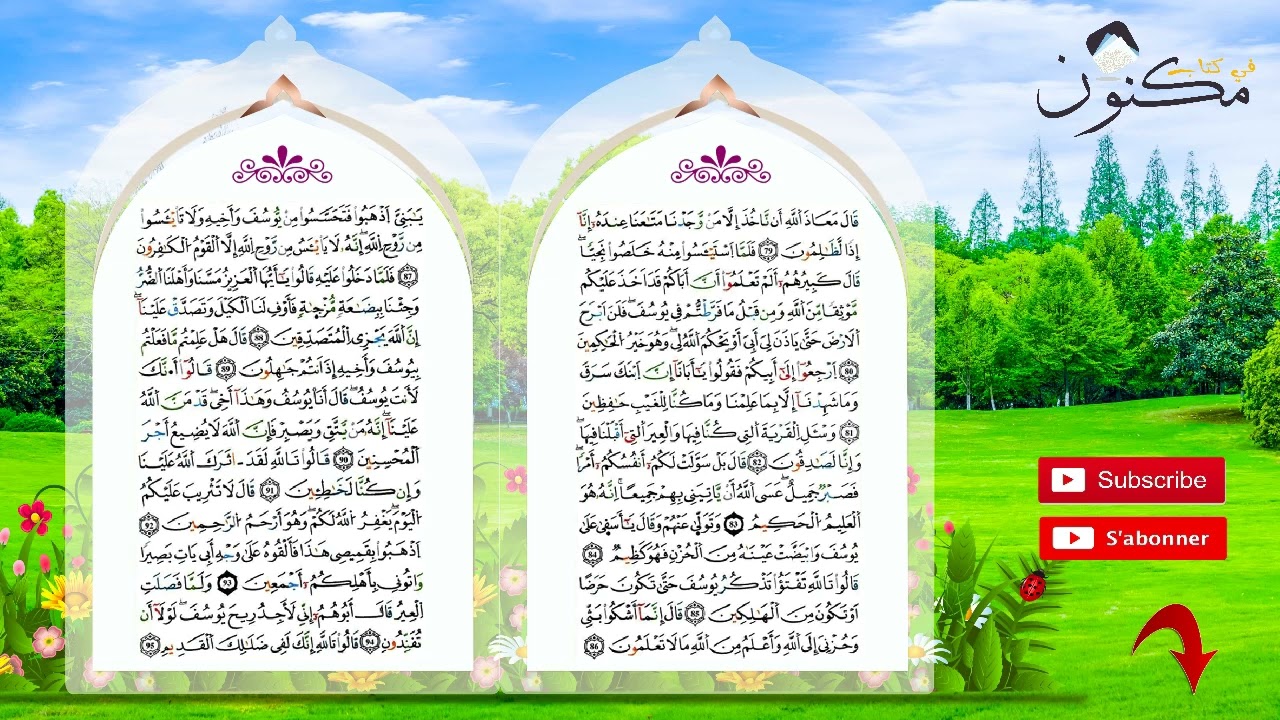 في كتاب
مكنون
قَالَ مَعَاذَ اَللَّهِ أَن نَّاخُذَ إِلَّا مَنْ وَّجَدْنَا مَتَٰعَنَا عِندَهُۥ إِنَّآ
إِذاٗ لَّظَٰلِمُونَ 79 فَلَمَّا اَسْتَيْـَٔسُواْ مِنْهُ خَلَصُواْ نَجِيّاٗۖ
قَالَ كَبِيرُهُمُۥٓ أَلَمْ تَعْلَمُوٓاْ أَنَّ أَبَاكُمْ قَدَ اَخَذَ عَلَيْكُم
مَّوْثِقاٗ مِّنَ اَللَّهِ وَمِن قَبْلُ مَا فَرَّطتُّمْ فِي يُوسُفَۖ فَلَنَ اَبْرَحَ
اَلَارْضَ حَتَّىٰ يَاذَنَ لِيَ أَبِيَ أَوْ يَحْكُمَ اَللَّهُ لِيۖ وَهُوَ خَيْرُ اُلْحَٰكِمِينَ
80 اَرْجِعُوٓاْ إِلَىٰٓ أَبِيكُمْ فَقُولُواْ يَٰٓأَبَانَآ إِنَّ اَبْنَكَ سَرَقَ
وَمَا شَهِدْنَآ إِلَّا بِمَا عَلِمْنَا وَمَا كُنَّا لِلْغَيْبِ حَٰفِظِينَ
81 وَسْـَٔلِ اِلْقَرْيَةَ اَلتِي كُنَّا فِيهَا وَالْعِيرَ اَلتِيٓ أَقْبَلْنَا فِيهَاۖ
وَإِنَّا لَصَٰدِقُونَ 82 قَالَ بَلْ سَوَّلَتْ لَكُمُۥٓ أَنفُسُكُمُۥٓ أَمْراٗۖ
فَصَبْرٞ جَمِيلٌۖ عَسَى اَللَّهُ أَنْ يَّاتِيَنِي بِهِمْ جَمِيعاًۖ اِنَّهُۥ هُوَ
اَلْعَلِيمُ اُلْحَكِيمُ 83 وَتَوَلَّىٰ عَنْهُمْ وَقَالَ يَٰٓأَسَفَىٰ عَلَىٰ
يُوسُفَ وَابْيَضَّتْ عَيْنَٰهُ مِنَ اَلْحُزْنِ فَهُوَ كَظِيمٞ 84
قَالُواْ تَاللَّهِ تَفْتَؤُاْ تَذْكُرُ يُوسُفَ حَتَّىٰ تَكُونَ حَرَضاً
اَوْ تَكُونَ مِنَ اَلْهَٰلِكِينَ 85 قَالَ إِنَّمَآ أَشْكُواْ بَثِّي
وَحُزْنِيَ إِلَى اَللَّهِ وَأَعْلَمُ مِنَ اَللَّهِ مَا لَا تَعْلَمُونَ 86
يَٰبَنِيَّ اَذْهَبُواْ فَتَحَسَّسُواْ مِنْ يُّوسُفَ وَأَخِيهِ وَلَا تَاْيْـَٔسُواْ
مِن رَّوْحِ اِللَّهِۖ إِنَّهُۥ لَا يَاْيْـَٔسُ مِن رَّوْحِ اِللَّهِ إِلَّا اَلْقَوْمُ اُلْكَٰفِرُونَ
87 فَلَمَّا دَخَلُواْ عَلَيْهِ قَالُواْ يَٰٓأَيُّهَا اَلْعَزِيزُ مَسَّنَا وَأَهْلَنَا اَلضُّرُّ
وَجِئْنَا بِبِضَٰعَةٖ مُّزْجَىٰةٖ فَأَوْفِ لَنَا اَلْكَيْلَ وَتَصَدَّقْ عَلَيْنَآۖ
إِنَّ اَللَّهَ يَجْزِي اِلْمُتَصَدِّقِينَ 88 قَالَ هَلْ عَلِمْتُم مَّا فَعَلْتُم
بِيُوسُفَ وَأَخِيهِ إِذَ اَنتُمْ جَٰهِلُونَ 89 قَالُوٓاْ أَ۟نَّكَ
لَأَنتَ يُوسُفُۖ قَالَ أَنَا يُوسُفُ وَهَٰذَآ أَخِي قَدْ مَنَّ اَللَّهُ
عَلَيْنَآۖ إِنَّهُۥ مَنْ يَّتَّقِ وَيَصْبِرْ فَإِنَّ اَللَّهَ لَا يُضِيعُ أَجْرَ
اَلْمُحْسِنِينَ 90 قَالُواْ تَاللَّهِ لَقَدَ اٰثَرَكَ اَللَّهُ عَلَيْنَا
وَإِن كُنَّا لَخَٰطِـِٕينَ 91 قَالَ لَا تَثْرِيبَ عَلَيْكُمُ
اُلْيَوْمَۖ يَغْفِرُ اُللَّهُ لَكُمْۖ وَهُوَ أَرْحَمُ اُلرَّٰحِمِينَ 92
اَذْهَبُواْ بِقَمِيصِي هَٰذَا فَأَلْقُوهُ عَلَىٰ وَجْهِ أَبِي يَاتِ بَصِيراٗ
وَاتُونِي بِأَهْلِكُمُۥٓ أَجْمَعِينَ 93 وَلَمَّا فَصَلَتِ
اِلْعِيرُ قَالَ أَبُوهُمُۥٓ إِنِّي لَأَجِدُ رِيحَ يُوسُفَۖ لَوْلَآ أَن
تُفَنِّدُونِ 94 قَالُواْ تَاللَّهِ إِنَّكَ لَفِي ضَلَٰلِكَ اَلْقَدِيمِ 95
Subscribe
S'abonner